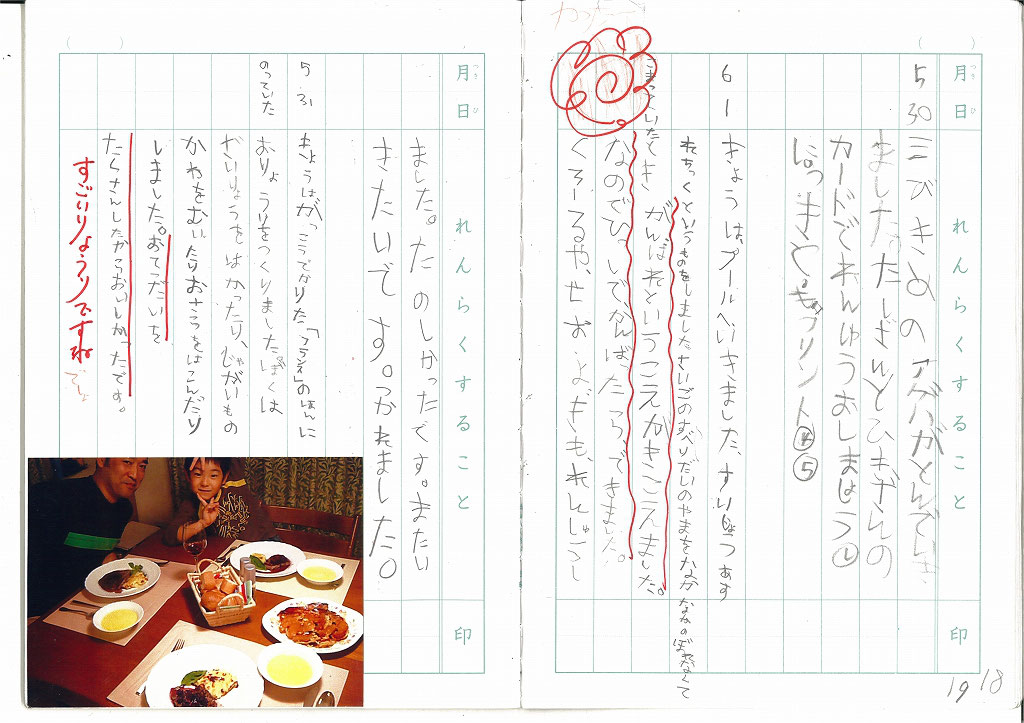 月日
れんらくすること
印
5 30
三びきめのアゲハがとんでいき
ました。たしざんとひきざんの
カードでれんしゅうおしまほう
ほっちきと。もっプリント④⑤
6 1
きょうは、プールへいきました。すい
れちっくというものをしました。さいごのすべりだいのやまをなかなかのぼれなくて
こまっていたとき、がんばれというこえがきこえました。
なのでひっしで、がんばったらできました。
くろーるや、せおよぎも、れんしゅうし
18
19
月日
れんらくすること
印
ました。たのしかったです。またい
きたいです。つかれました。
5 31
きょうはがっこうでかりた「フランス」のほんに
のっていた
おりょうりをつくりました。ぼくは
ざいりょうをはかったり、じゃがいもの
かわをむいたりおさらをはこんだり
しました。おてつだいを
たくさんしたからおいしかったです。
すごいりょうりですね